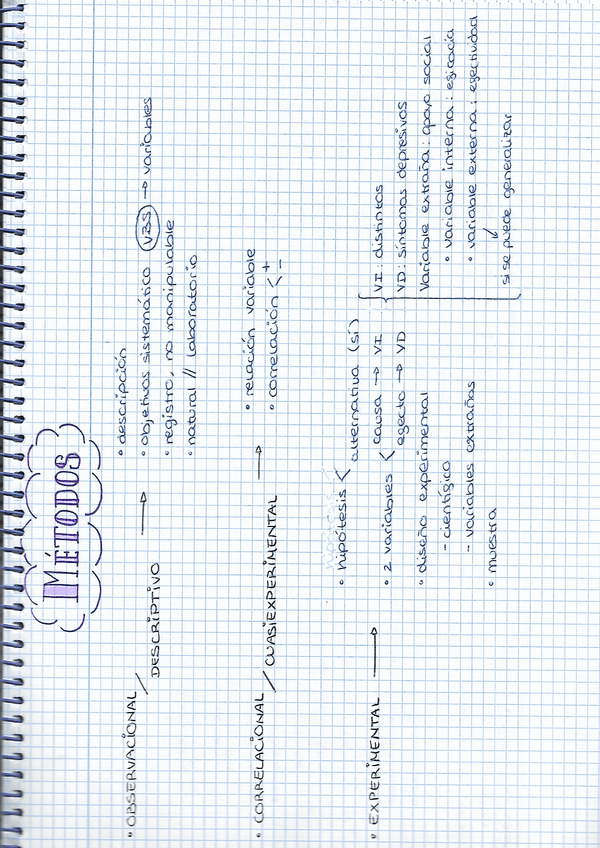 MÉTODOS
• OBSERVACIONAL / DESCRIPTIVO →
• descripción
• objetivos sistemático VBS → variables
• registro, no manipulable
• natural // laboratorio
• CORRELACIONAL / CUASIEXPERIMENTAL →
• relación variable
• correlación < + -
• EXPERIMENTAL →
• hipótesis < alternativa (sí)
• 2 variables < causa → VI
egecto → VD
• diseño experimental
- científico
- variables extrañas
• muestra
VI: distintos
VD: síntomas depresivos
Variable extraña: apoyo social
• variable interna: egicacia
• variable externa: egectividad
si se puede generalizar